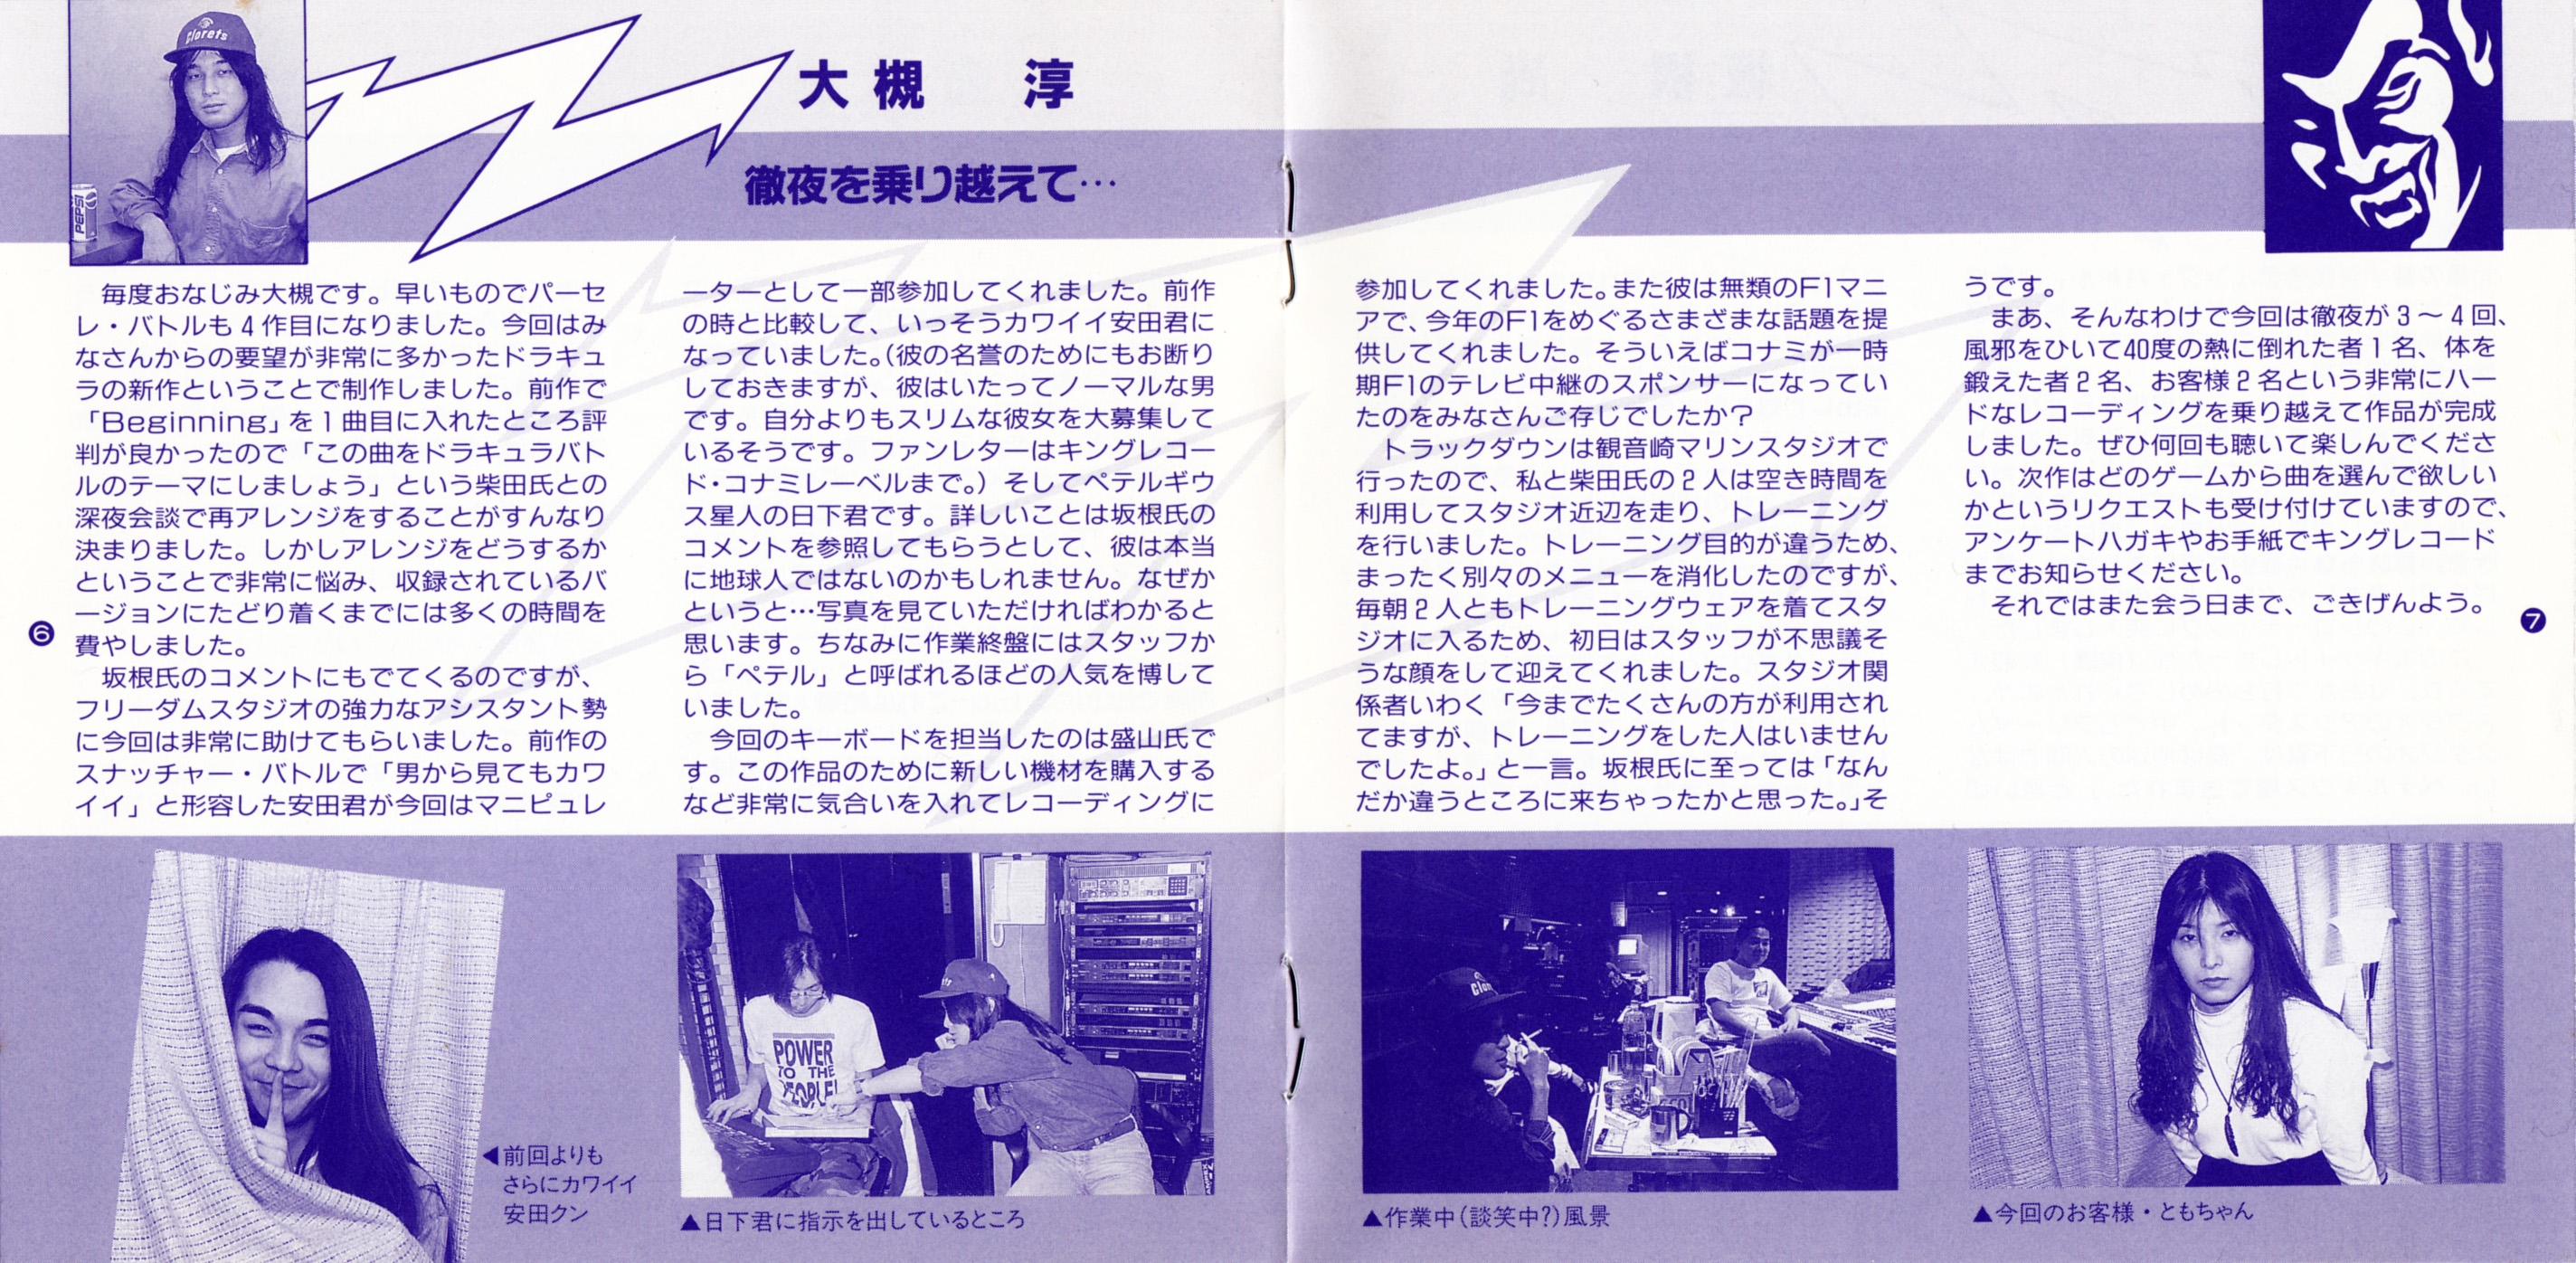 Clorets
PEPSI
大槻 淳
徹夜を乗り越えて…
毎度おなじみ大槻です。早いものでパーセ
レ・バトルも4作目になりました。今回はみ
なさんからの要望が非常に多かったドラキュ
ラの新作ということで制作しました。前作で
「Beginning」を1曲目に入れたところ評
判が良かったので「この曲をドラキュラバト
ルのテーマにしましょう」という柴田氏との
深夜会談で再アレンジをすることがすんなり
決まりました。しかしアレンジをどうするか
ということで非常に悩み、収録されているバ
ージョンにたどり着くまでには多くの時間を
費やしました。
坂根氏のコメントにもでてくるのですが、
フリーダムスタジオの強力なアシスタント勢
に今回は非常に助けてもらいました。前作の
スナッチャー・バトルで「男から見てもカワ
イイ」と形容した安田君が今回はマニピュレ
ーターとして一部参加してくれました。前作
の時と比較して、いっそうカワイイ安田君に
なっていました。(彼の名誉のためにもお断り
しておきますが、彼はいたってノーマルな男
です。自分よりもスリムな彼女を大募集して
いるそうです。ファンレターはキングレコー
ド・コナミレーベルまで。)そしてペテルギウ
ス星人の日下君です。詳しいことは坂根氏の
コメントを参照してもらうとして、彼は本当
に地球人ではないのかもしれません。なぜか
というと…写真を見ていただければわかると
思います。ちなみに作業終盤にはスタッフか
ら「ペテル」と呼ばれるほどの人気を博して
いました。
今回のキーボードを担当したのは盛山氏で
す。この作品のために新しい機材を購入する
など非常に気合いを入れてレコーディングに
参加してくれました。また彼は無類のF1マニ
アで、今年のF1をめぐるさまざまな話題を提
供してくれました。そういえばコナミが一時
期F1のテレビ中継のスポンサーになってい
たのをみなさんご存じでしたか?
トラックダウンは観音崎マリンスタジオで
行ったので、私と柴田氏の2人は空き時間を
利用してスタジオ近辺を走り、トレーニング
を行いました。トレーニング目的が違うため、
まったく別々のメニューを消化したのですが、
毎朝2人ともトレーニングウェアを着てスタ
ジオに入るため、初日はスタッフが不思議そ
うな顔をして迎えてくれました。スタジオ関
係者いわく「今までたくさんの方が利用され
てますが、トレーニングをした人はいません
でしたよ。」と一言。坂根氏に至っては「なん
だか違うところに来ちゃったかと思った。」そ
うです。
まあ、そんなわけで今回は徹夜が3〜4回、
風邪をひいて40度の熱に倒れた者1名、体を
鍛えた者2名、お客様2名という非常にハー
ドなレコーディングを乗り越えて作品が完成
しました。ぜひ何回も聴いて楽しんでくださ
い。次作はどのゲームから曲を選んで欲しい
かというリクエストも受け付けていますので、
アンケートハガキやお手紙でキングレコード
までお知らせください。
それではまた会う日まで、ごきげんよう。
6
7
◀前回よりも
さらにカワイイ
安田クン
POWER
TO THE
PEOPLE!
▲日下君に指示を出しているところ
▲作業中(談笑中?)風景
▲今回のお客様・ともちゃん